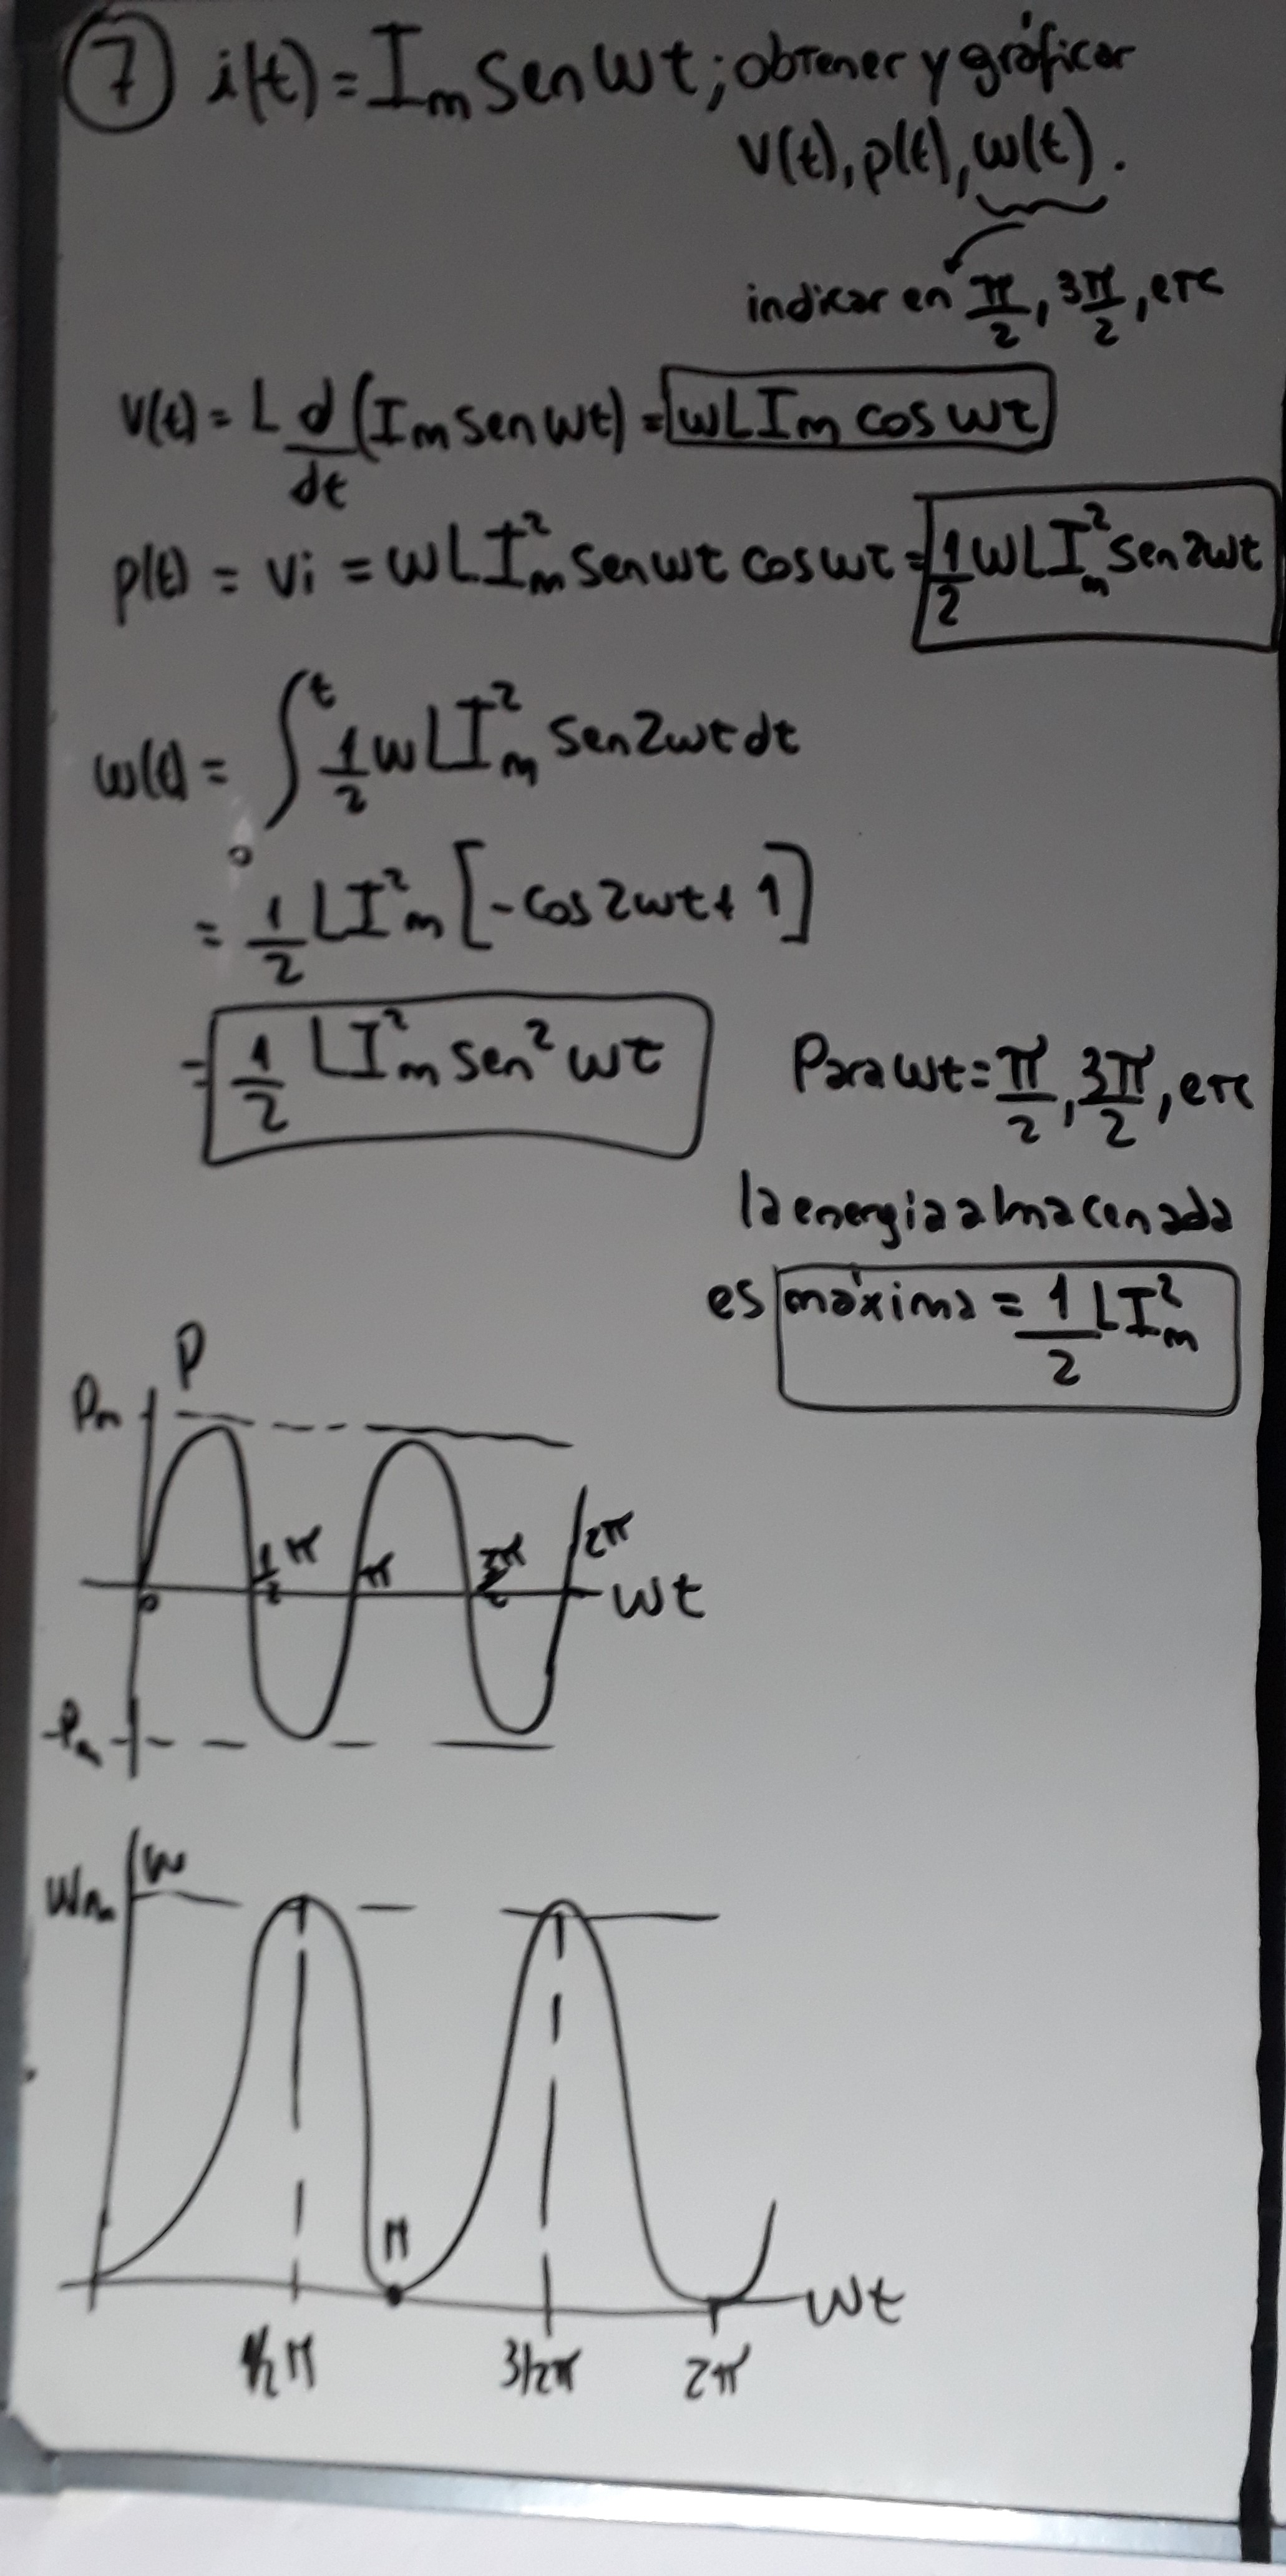 7 i(t) = Im Sen wt; obtener y gráficar
v(t), p(t), w(t).
indicar en π/2, 3π/2, etc
v(t) = L d/dt (Im sen wt) = wLIm cos wt
p(t) = vi = wLI²m sen wt cos wt = 1/2 wLI²m sen 2wt
w(t) = ∫₀ᵗ 1/2 wLI²m sen2wt dt
= 1/2 LI²m [-cos2wt + 1]
= 1/2 LI²m sen² wt
Para wt = π/2, 3π/2, etc
la energia almacenada
es máxima = 1/2 LI²m
P
Pm
0 1/2 π π 3/2 π 2π wt
-Pm
w
Wm
π wt
1/2 π 3/2π 2π